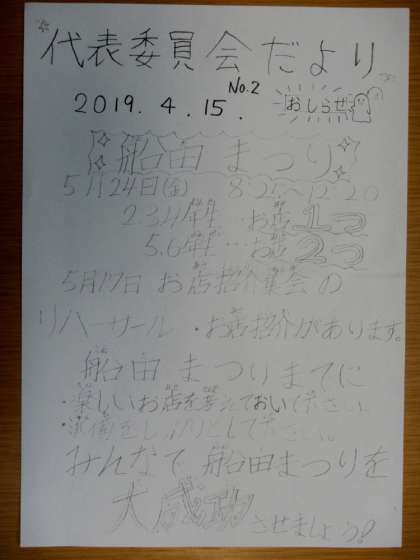 代表委員会だより
No.2
2019.4.15.
おしらせ
船田まつり
5月24日(金) 8:25〜12:20
2.3.4年生…お店1つ
5.6年生…お店2つ
5月17日 お店紹介集会の
リハーサル・お店紹介があります。
船田まつりまでに
・楽しいお店を考えておいて下さい
・準備をしっかりとして下さい。
みんなで船田まつりを
大成功
させましょう!